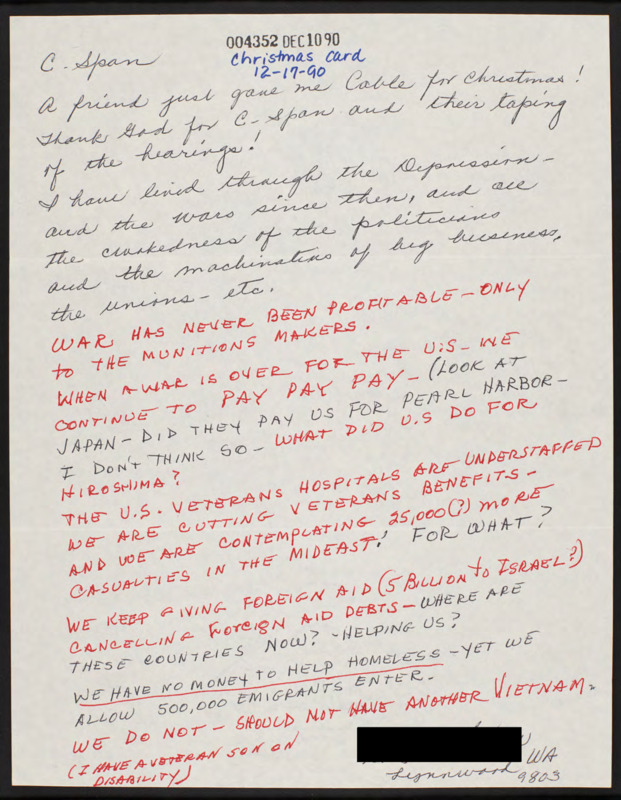 004352 DEC 10 90
Christmas card
12-17-90
C. Span
A friend just gave me Cable for Christmas!
Thank God for C-Span and their taping
of the hearings!
I have lived through the Depression -
and the wars since then, and see
the crookedness of the politicians
and the machinations of big business,
the unions - etc.
WAR HAS NEVER BEEN PROFITABLE - ONLY
to THE MUNITIONS MAKERS.
WHEN A WAR IS OVER FOR THE U.S - WE
CONTINUE TO PAY PAY PAY - (LOOK AT
JAPAN - DID THEY PAY US FOR PEARL HARBOR -
I DON'T THINK SO - WHAT DID U.S DO FOR
HIROSHIMA?
THE U.S. VETERANS HOSPITALS ARE UNDERSTAFFED
WE ARE CUTTING VETERANS BENEFITS -
AND WE ARE CONTEMPLATING 25,000(?) MORE
CASUALTIES IN THE MIDEAST! FOR WHAT?
WE KEEP GIVING FOREIGN AID (5 BILLION to ISRAEL?)
CANCELLING FOREIGN AID DEBTS - WHERE ARE
THESE COUNTRIES NOW? - HELPING US?
WE HAVE NO MONEY TO HELP HOMELESS - YET WE
ALLOW 500,000 EMIGRANTS ENTER.
WE DO NOT - SHOULD NOT HAVE ANOTHER VIETNAM.
(I HAVE A VETERAN SON ON
DISABILITY)
Lynnwood WA
9803